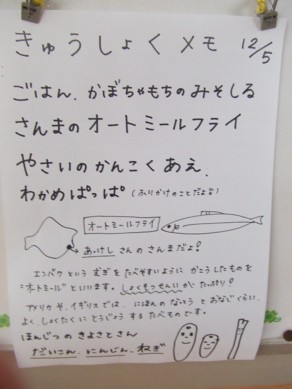 きゅうしょくメモ 12/5
ごはん、かぼちゃもちのみそしる
さんまのオートミールフライ
やさいのかんこくあえ、
わかめぱっぱ（ふりかけのことだよ）
オートミールフライ
あっけしさんのさんまだよ！
エンバクという むぎをたべやすいように かこうしたものを
"オートミール"といいます。しょくもつせんいが たっぷり！
アメリカや、イギリスでは、にほんの なっとうと おなじくらい、
よく しょくたくに とうじょうする たべものです。
ほんじつの きよさとさん
だいこん、にんじん、ねぎ